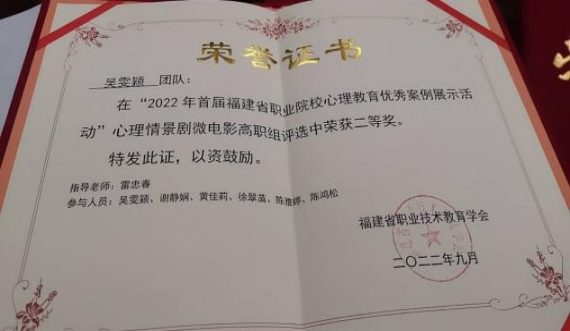 荣誉证书
吴雯颖 团队：
在“2022年首届福建省职业院校心理教育优秀案例展示活
动”心理情景剧微电影高职组评选中荣获二等奖。
特发此证，以资鼓励。
指导老师：雷忠春
参与人员：吴雯颖、谢静娴、黄佳莉、徐翠苗、陈雅婷、陈鸿松
福建省职业技术教育学会
二〇二二年九月